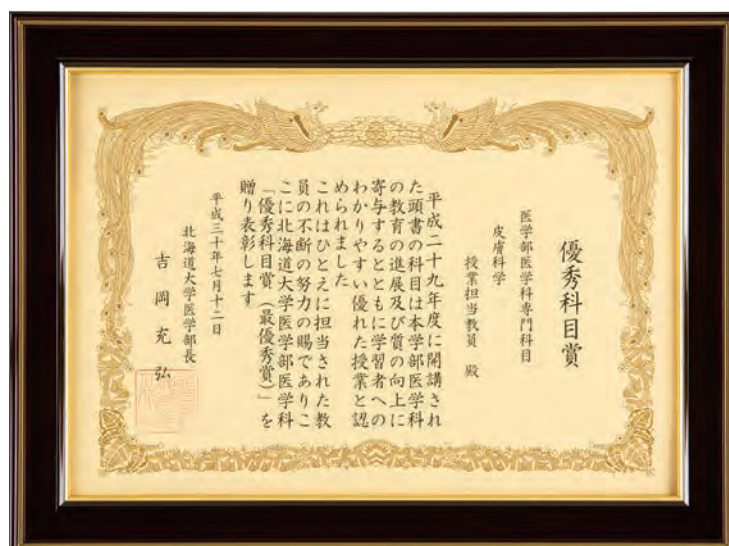 優秀科目賞
医学部医学科専門科目
皮膚科学
授業担当教員 殿
平成二十九年度に開講され
た頭書の科目は本学部医学科
の教育の進展及び質の向上に
寄与するとともに学習者への
わかりやすい優れた授業と認
められました
これはひとえに担当された教
員の不断の努力の賜でありこ
こに北海道大学医学部医学科
「優秀科目賞(最優秀賞)」を
贈り表彰します
平成三十年七月十二日
北海道大学医学部長
吉岡充弘